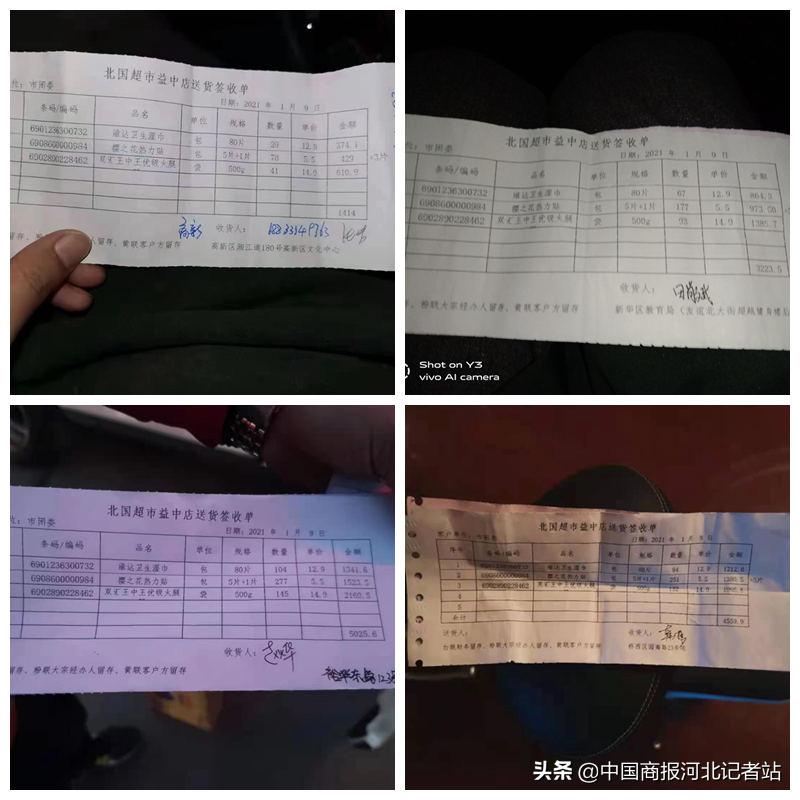 北国超市益中店送货签收单
位：市团委
日期：2021 年 1 月 9 日
条码/编码 品名 单位 规格 数量 单价 金额
6901236300732 维达卫生湿巾 包 80片 29 12.9 374.1
6908600000984 樱之花热力贴 包 5片+1片 78 5.5 429
6902890228462 双汇王中王优级火腿 袋 500g 41 14.9 610.9
1414
高新 收货人：
留存、粉联大宗经办人留存、黄联客户方留存 高新区湘江道180号高新区文化中心
北国超市益中店送货签收单
日期：2021 年 1 月 9 日
条码/编码 品名 单位 规格 数量 单价 金额
6901236300732 维达卫生湿巾 包 80片 67 12.9 864.3
6908600000984 樱之花热力贴 包 5片+1片 177 5.5 973.50
6902890228462 双汇王中王优级火腿 袋 500g 93 14.9 1385.7
3223.5
收货人：
存、粉联大宗经办人留存、黄联客户方留存 新华区教育局（友谊北大街超越健身楼后
Shot on Y3
vivo AI camera
北国超市益中店送货签收单
位：市团委
日期：2021 年 1 月 9 日
条码/编码 品名 单位 规格 数量 单价 金额
6901236300732 维达卫生湿巾 包 80片 104 12.9 1341.6
6908600000984 樱之花热力贴 包 5片+1片 277 5.5 1523.5
6902890228462 双汇王中王优级火腿 袋 500g 145 14.9 2160.5
5025.6
收货人：
留存、粉联大宗经办人留存、黄联客户方留存
裕华东路123
北国超市益中店送货签收单
客户单位：市团委
日期：2021 年 1 月 9 日
序号 条码/编码 品名 单位 规格 数量 单价 金额
1 6901236300732 维达卫生湿巾 包 80片 94 12.9 1212.6
2 6908600000984 樱之花热力贴 包 5片+1片 251 5.5 1380.5
3 6902890228462 双汇王中王优级火腿 袋 500g 132 14.9
4
5
合计 4559.9
送货人： 收货人：
白联财务留存、粉联大宗经办人留存、黄联客户方留存
头条 @中国商报河北记者站